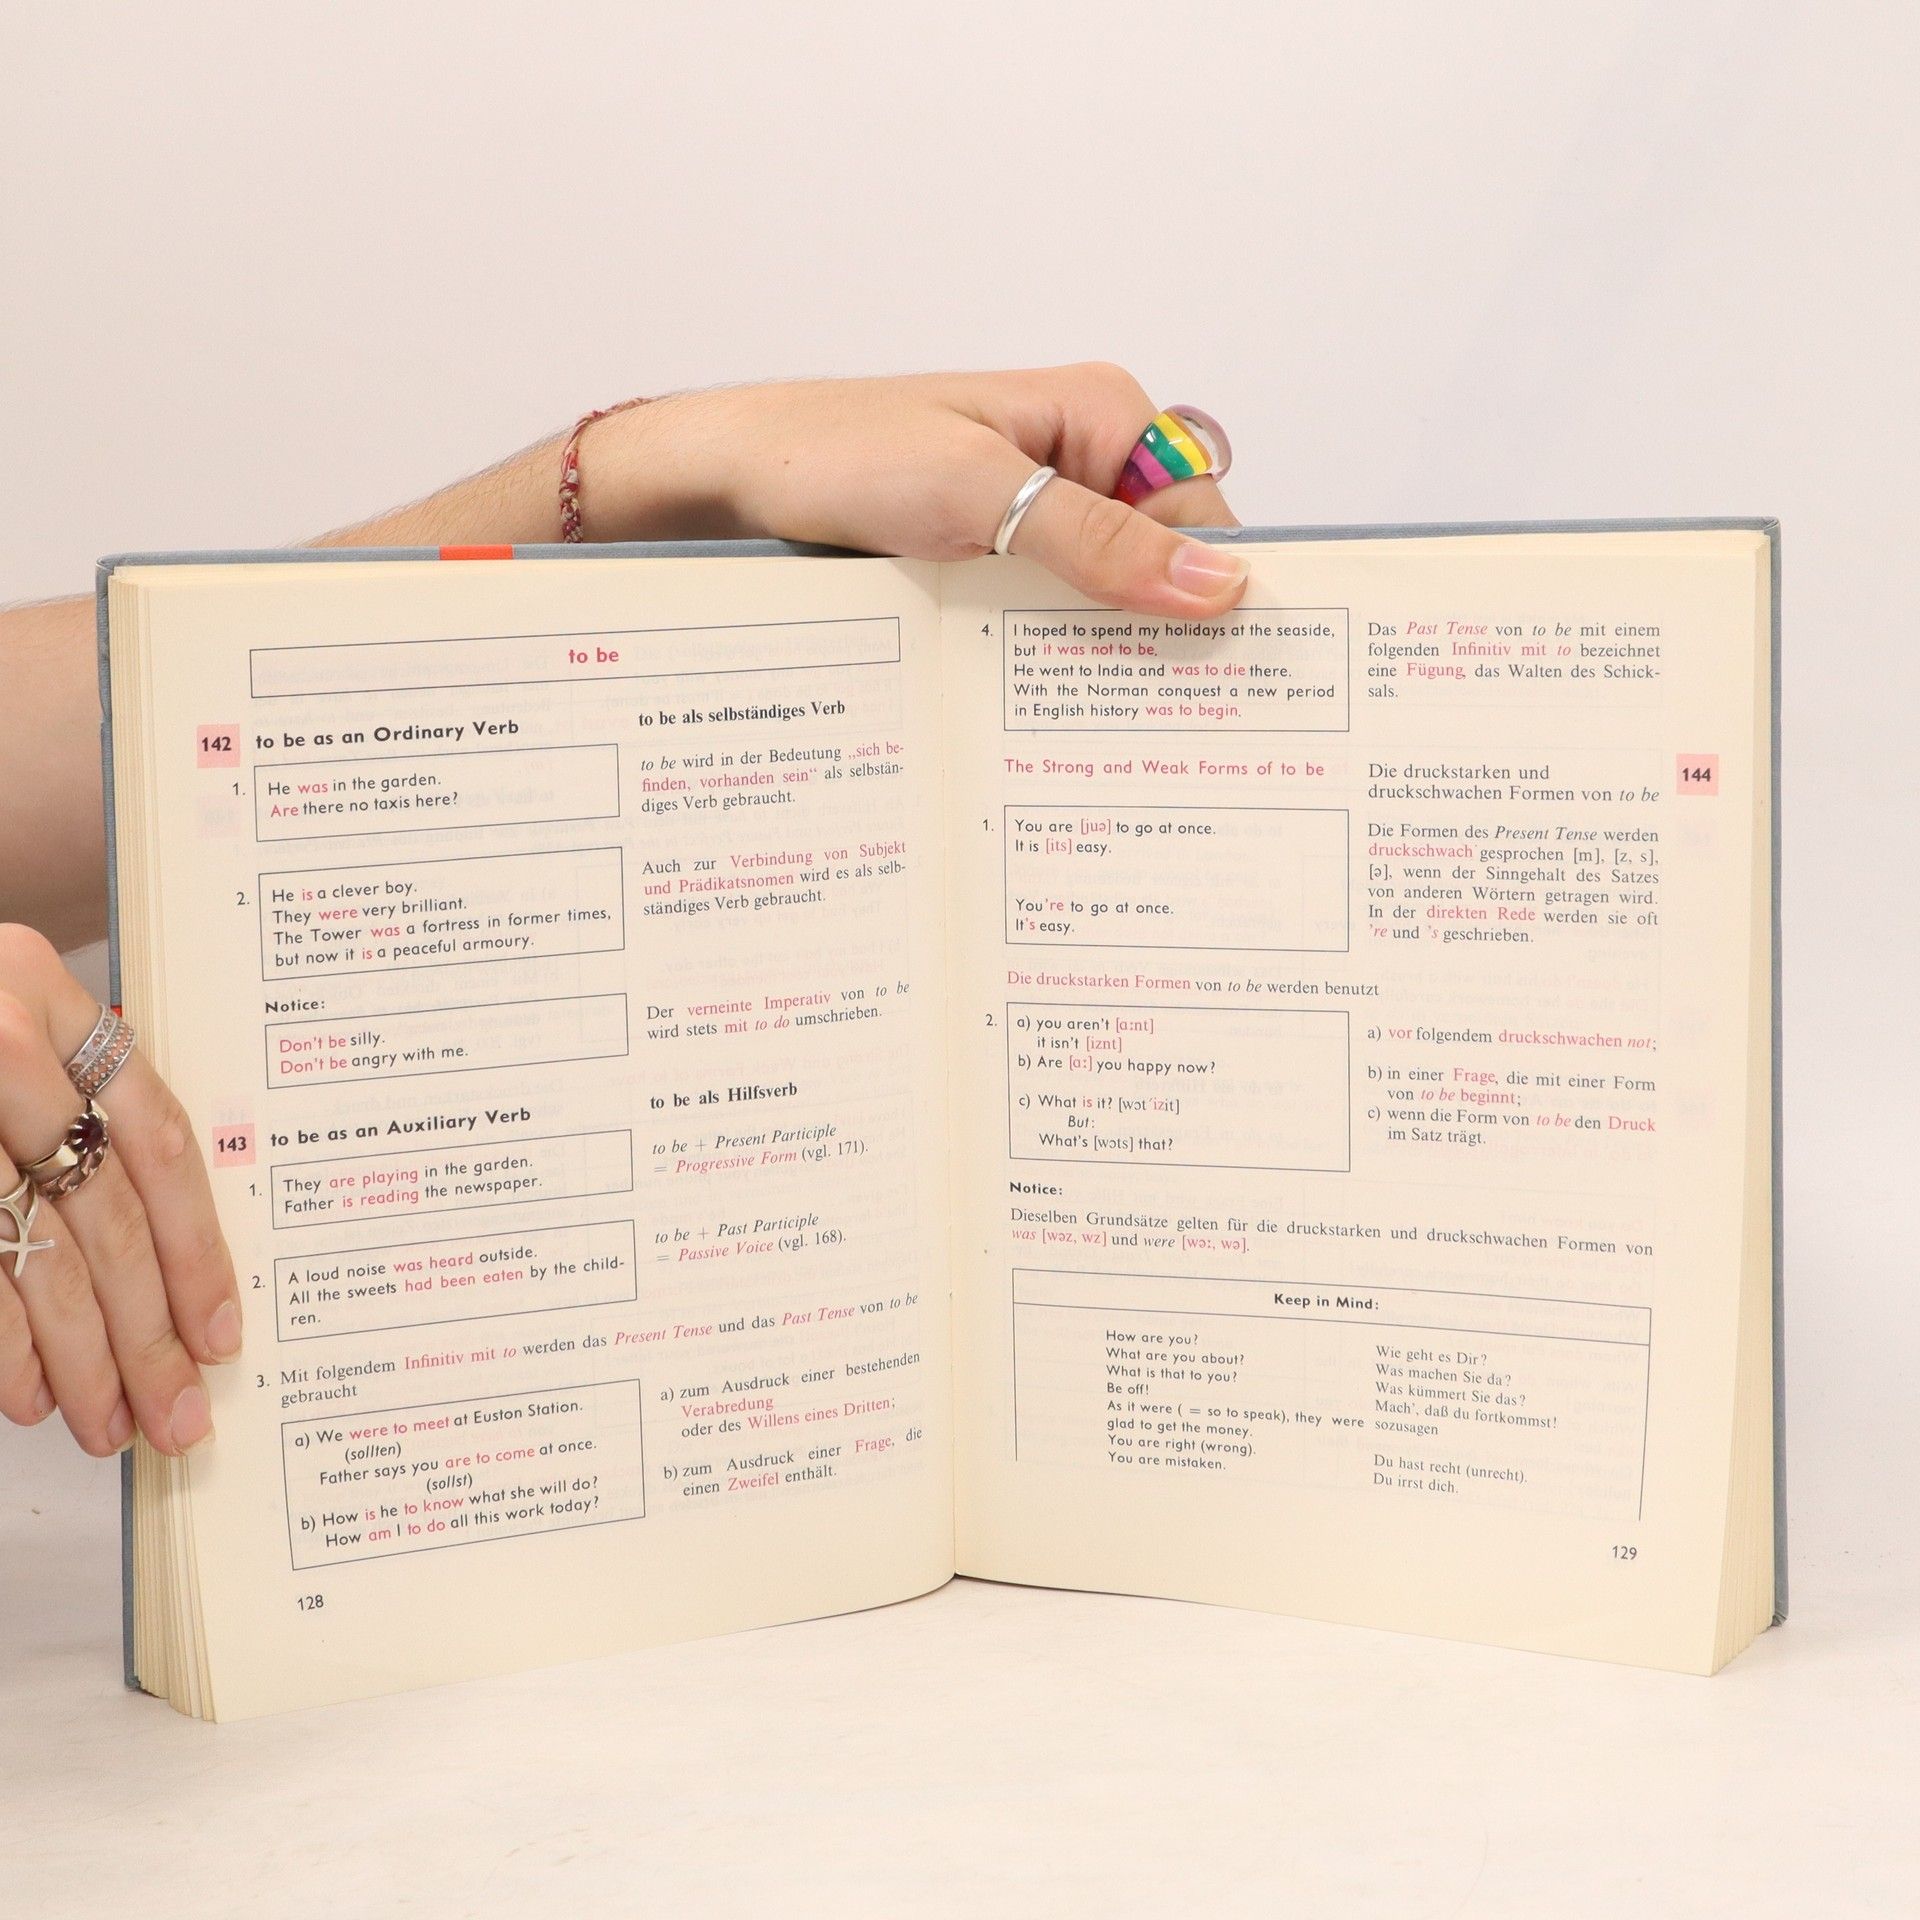 to be
142
to be as an Ordinary Verb
to be als selbständiges Verb
1.
He was in the garden.
Are there no taxis here?
to be wird in der Bedeutung „sich be-
finden, vorhanden sein“ als selbstän-
diges Verb gebraucht.
2.
He is a clever boy.
They were very brilliant.
The Tower was a fortress in former times,
but now it is a peaceful armoury.
Auch zur Verbindung von Subjekt
und Prädikatsnomen wird es als selb-
ständiges Verb gebraucht.
Notice:
Don't be silly.
Don't be angry with me.
Der verneinte Imperativ von to be
wird stets mit to do umschrieben.
143
to be as an Auxiliary Verb
to be als Hilfsverb
1.
They are playing in the garden.
Father is reading the newspaper.
to be + Present Participle
= Progressive Form (vgl. 171).
2.
A loud noise was heard outside.
All the sweets had been eaten by the child-
ren.
to be + Past Participle
= Passive Voice (vgl. 168).
3. Mit folgendem Infinitiv mit to werden das Present Tense und das Past Tense von to be
gebraucht
a) We were to meet at Euston Station.
(sollten)
Father says you are to come at once.
(sollst)
b) How is he to know what she will do?
How am I to do all this work today?
a) zum Ausdruck einer bestehenden
Verabredung
oder des Willens eines Dritten;
b) zum Ausdruck einer Frage, die
einen Zweifel enthält.
128
4.
I hoped to spend my holidays at the seaside,
but it was not to be.
He went to India and was to die there.
With the Norman conquest a new period
in English history was to begin.
Das Past Tense von to be mit einem
folgenden Infinitiv mit to bezeichnet
eine Fügung, das Walten des Schick-
sals.
The Strong and Weak Forms of to be
Die druckstarken und
druckschwachen Formen von to be
144
1.
You are [juə] to go at once.
It is [its] easy.
You're to go at once.
It's easy.
Die Formen des Present Tense werden
druckschwach gesprochen [m], [z, s],
[ə], wenn der Sinngehalt des Satzes
von anderen Wörtern getragen wird.
In der direkten Rede werden sie oft
're und 's geschrieben.
Die druckstarken Formen von to be werden benutzt
2.
a) you aren't [ɑ:nt]
it isn't [iznt]
b) Are [ɑ:] you happy now?
c) What is it? [wɔt'izit]
But:
What's [wɔts] that?
a) vor folgendem druckschwachen not;
b) in einer Frage, die mit einer Form
von to be beginnt;
c) wenn die Form von to be den Druck
im Satz trägt.
Notice:
Dieselben Grundsätze gelten für die druckstarken und druckschwachen Formen von
was [wɔz, wz] und were [wə:, wə].
Keep in Mind:
How are you?
What are you about?
What is that to you?
Be off!
As it were ( = so to speak), they were
glad to get the money.
You are right (wrong).
You are mistaken.
Wie geht es Dir?
Was machen Sie da?
Was kümmert Sie das?
Mach', daß du fortkommst!
sozusagen
Du hast recht (unrecht).
Du irrst dich.
129